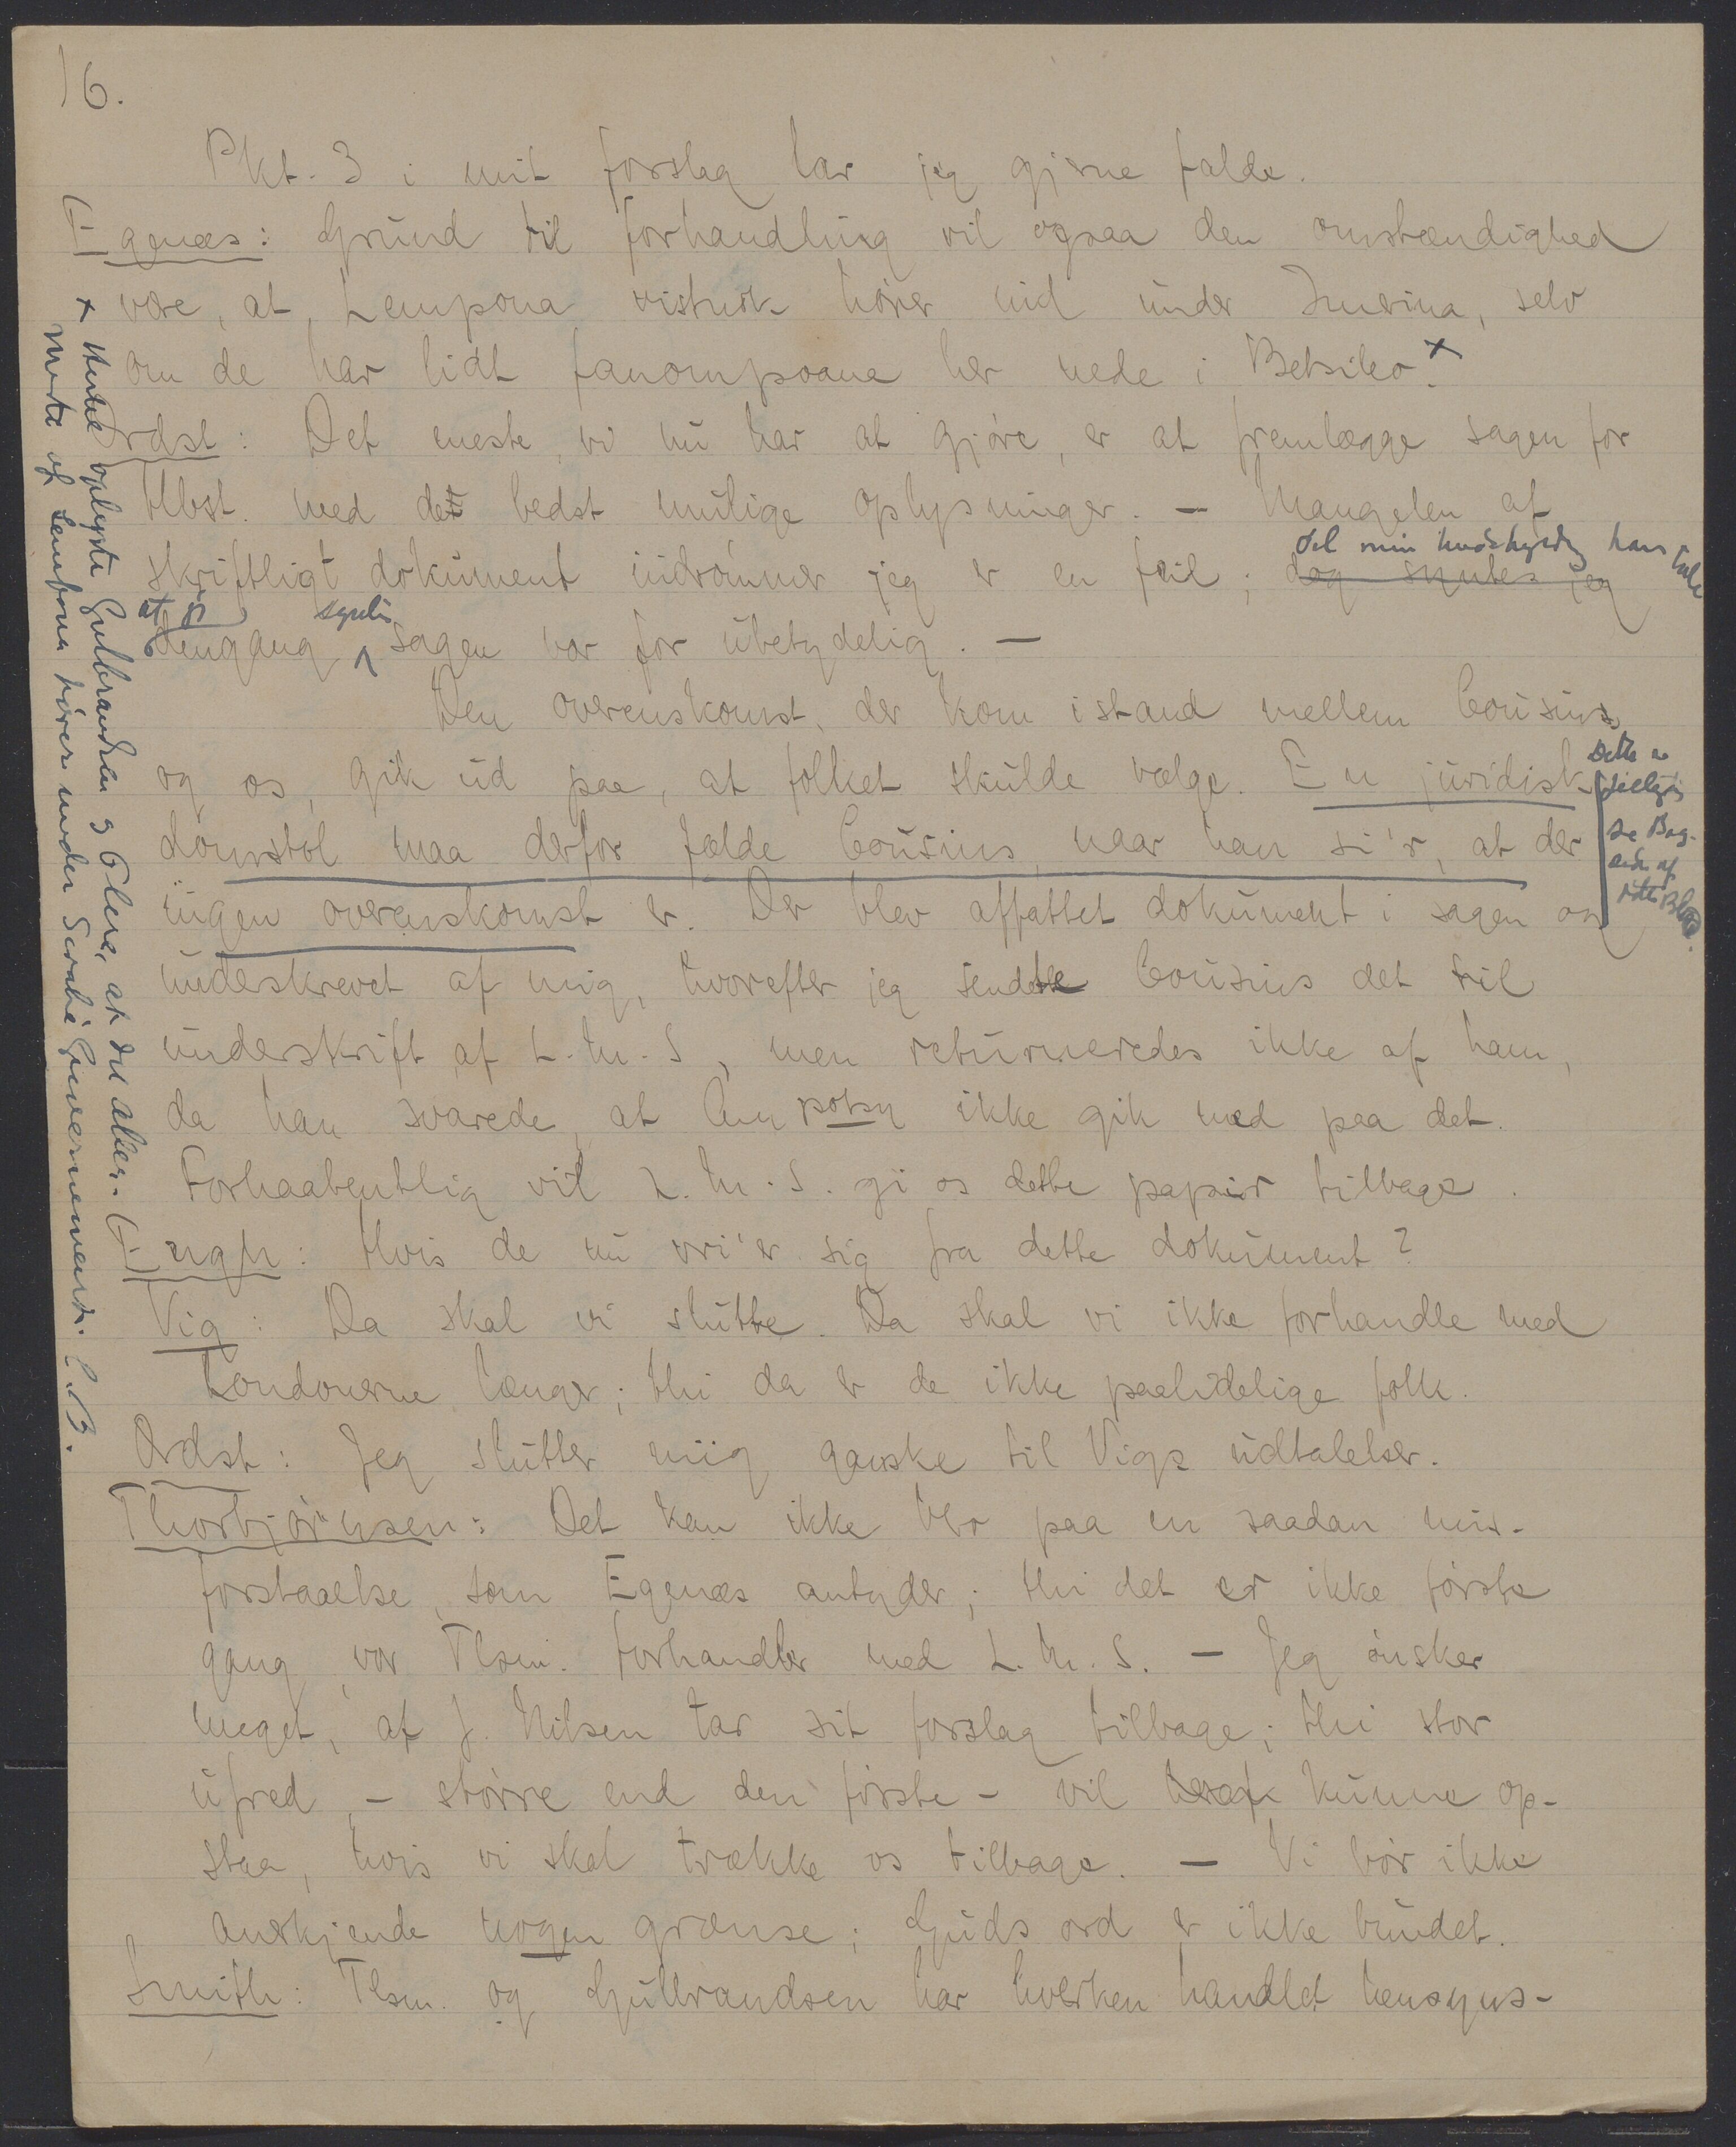 16.
Pkt. 3 i mit forslag lar jeg gjerne falde.
Egenæs: Grund til forhandling vil ogsaa den omstændighed
være, at Lempona historisk hører ind under Imerina, selv
om de har lidt fanompoana her nede i Betsileo. x
Ordst: Det eneste, vi nu har at gjøre, er at fremlægge sagen for
Hbst. med det bedst mulige oplysninger. – Mangelen af
det min undskyldning kan tale
skriftligt dokument indrømmer jeg er en feil; dog syntes jeg
at jeg syntes
dengang sagen var for ubetydelig. –
Den overenskomst, der kom istand mellem Cousins
og os, gik ud paa, at folket skulde vælge. En juridisk
domstol maa derfor fælde Cousins, naar han si'r, at der
ingen overenskomst er. Der blev affattet dokument i sagen og
underskrevet af mig, hvorefter jeg sendte Cousins det til
underskrift af L.M.S., men returneredes ikke af ham,
da han svarede, at Ampotsy ikke gik med paa det.
Forhaabentlig vil L.M.S. gi os dette papir tilbage.
Engh: Hvis de nu vri'er sig fra dette dokument?
Vig: Da skal vi slutte. Da skal vi ikke forhandle med
Londonerne længer; thi da er de ikke paalidelige folk.
Ordst: Jeg slutter mig ganske til Vigs udtalelser.
Thorbjørnsen: Det kan ikke bero paa en saadan mis-
forstaaelse, som Egenæs antyder; thi det er ikke første
gang, vor Tlsm. forhandler med L.M.S. – Jeg ønsker
meget, at J. Nilsen tar sit forslag tilbage; thi stor
ufred, – større end den første – vil kunne op-
staa, hvis vi skal trække os tilbage. – Vi bør ikke
anerkjende nogen grænse; Guds ord er ikke bundet.
Smith: Tlsm. og Gulbrandsen har hverken handlet hensyns-
Dette er
feilagtig
se Bag-
siden af
dette Blad.
x Hertil oplyste Gulbrandsen og Flere, at det aller-
meste af Lempona hører under Sirabe Guvernement. C.B.